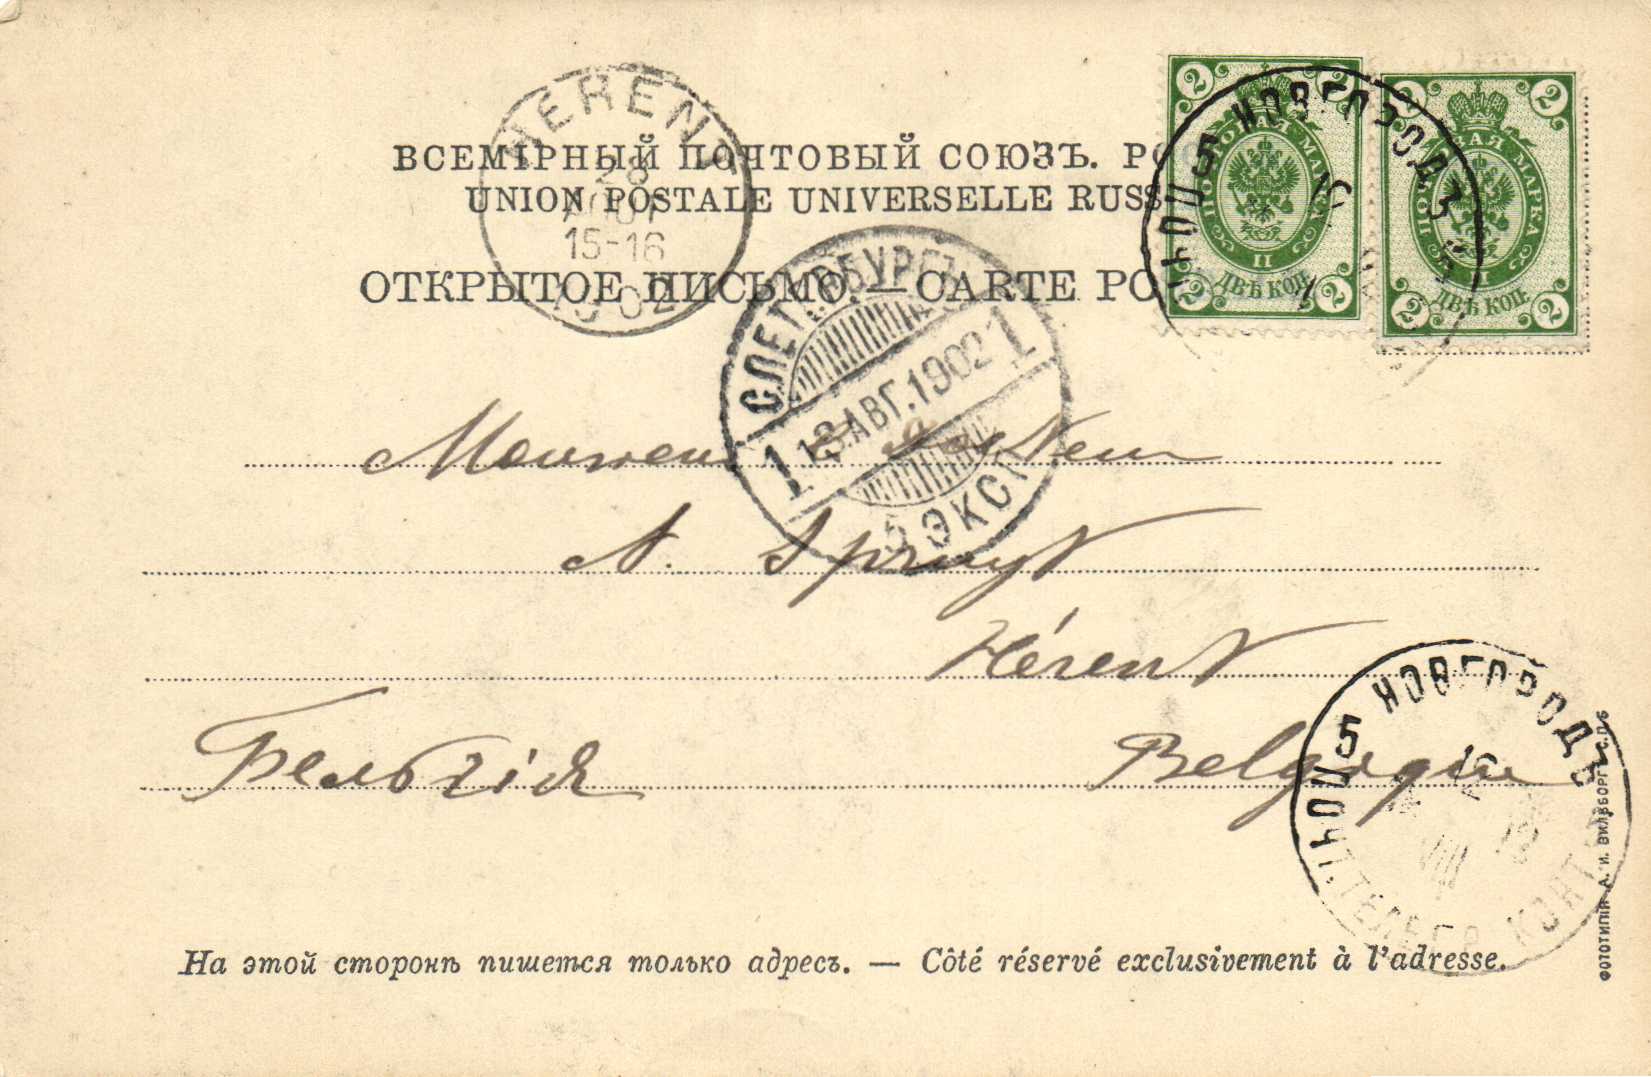 ВСЕМІРНЫЙ ПОЧТОВЫЙ СОЮЗЪ.
UNION POSTALE UNIVERSELLE RUSS
ОТКРЫТОЕ ПИСЬМО — CARTE PO
HERENT
28
AOUT
15-16
02
С.ПЕТЕРБУРГЪ
1 13 АВГ.1902 1
5 ЭКСП
НОВГОРОДЪ
2 2
ПОЧТОВАЯ МАРКА
ДВѢ КОП.
2 2
2
ПОЧТОВАЯ МАРКА
ДВѢ КОП.
2 2
Monsieur le Docteur
A. Spruyt
Hérent
Бельгія Belgique
НОВГОРОДЪ
5
VIII
ПОЧТ. ТЕЛЕГР. КОНТ.
ФОТОТИПІЯ А. И. ВИЛЬБОРГЪ С.П.Б
На этой сторонѣ пишется только адресъ. — Côté réservé exclusivement à l'adresse.